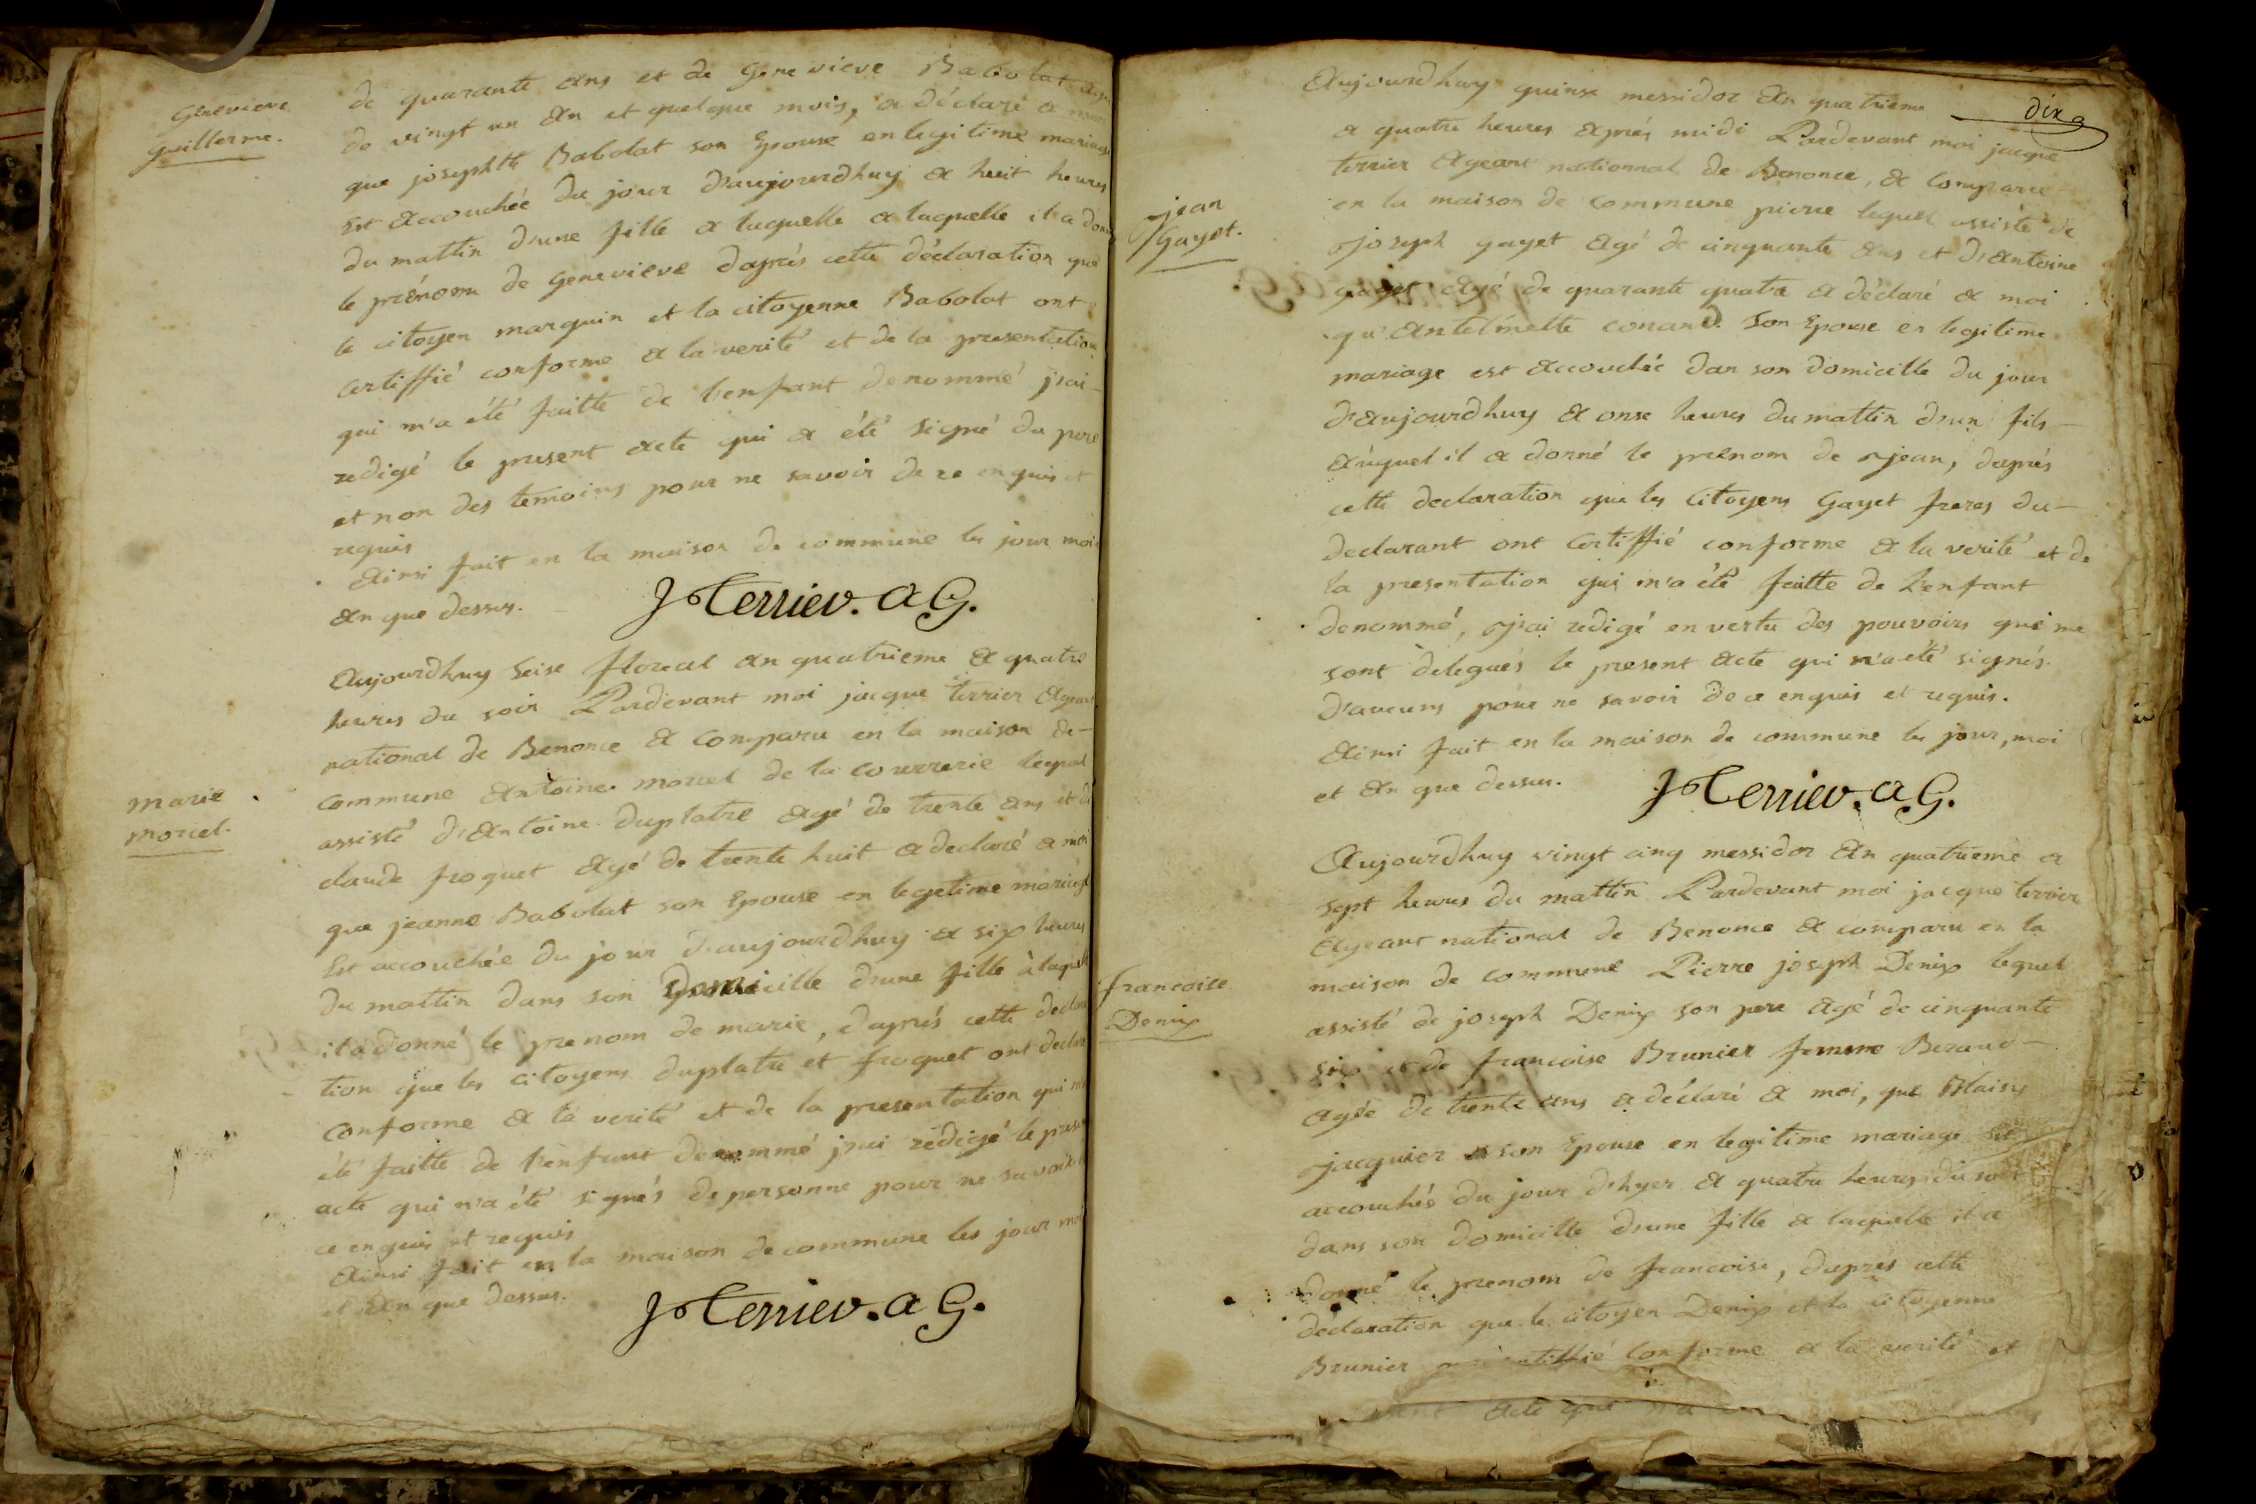 Genevieve
guillerme.
de quarante ans et de Genevieve Babolat
de vingt un an et quelque mois, a déclaré a
que josephte Babolat son Epouse en legitime mariage
Est accouchée du jour d'aujourdhuy a huit heures
du mattin d'une fille a laquelle a laquelle il a
le prénom de Genevieve d'aprés cette déclaration que
le citoyen marquin et la citoyenne Babolat ont
certiffié conforme a la verité et de la presentation
qui m'a été faitte de l'enfant denommé j'ai
redigé le present acte qui a été signé du pere
et non des temoins pour ne savoir de ce enquis et
requis
Ainsi fait en la maison de commune les jour moi
an que dessus.
J Terrier. a G.
marie
morcel.
Aujourdhuy seise floreal an quatrieme a quatre
heures du soir Pardevant moi jacque terrier Ageant
national de Benonce a comparu en la maison de
commune Antoine morcel de la courrerie lequel
assisté d'Antoine duplatre agé de trente ans et de
claude froquet agé de trente huit a declaré a moi
que jeanne Babolat son Epouse en legetime mariage
Est accouchée du jour d'aujourdhuy a six heures
du mattin dans son domicille d'une fille à laquelle
il a donné le prenom de marie, d'aprés cette declara
tion que les citoyens duplatre et froquet ont declaré
conforme a la verité et de la presentation qui m'a
été faitte de l'enfant denommé j'ai rédigé le present
acte qui n'a été signés de personne pour ne savoir
ce enquis et requis
Ainsi fait en la maison de commune les jour moi
et an que dessus.
J Terrier. a G.
dix
jean
Gayet.
Aujourdhuy quinse messidor an quatrieme
a quatre heures aprés midi Pardevant moi jacque
terrier Ageant nationnal de Benonce, a comparu
en la maison de commune pierre lequel assisté de
joseph gayet agé de cinquante ans et d'Antoine
gayet agé de quarante quatre a déclaré a moi
qu'Antelmette conand son Epouse en legitime
mariage est accouchée dan son domicille du jour
d'aujourdhuy a onse heures du mattin d'un fils
auquel il a donné le prénom de jean, daprés
cette declaration que les citoyens Gayet freres du
declarant ont certiffié conforme a la verité et de
la presentation qui m'a été faitte de l'enfant
denommé, j'ai redigé en vertu des pouvoirs qui me
sont delegués le present acte qui n'a été signés
d'aucuns pour ne savoir de ce enquis et requis.
Ainsi fait en la maison de commune les jour, moi
et an que dessus.
J Terrier. a. G.
francoise
Denix
Aujourdhuy vingt cinq messidor an quatrieme a
sept heures du mattin Pardevant moi jacque terrier
Ageant national de Benonce a comparu en la
maison de commune Pierre joseph Denix lequel
assisté de joseph Denix son pere agé de cinquante
six et de francoise Brunier femme Beraud
agée de trente ans a déclaré a moi, que Blaise
jacquier son Epouse en legitime mariage est
accouchés du jour d'hyer a quatre heures du soir
dans son domicille d'une fille a laquelle il a
donné le prenom de francoise, d'aprés cette
déclaration que le citoyen Denix et la citoyenne
Brunier certiffié conforme a la verité et
acte que n'a